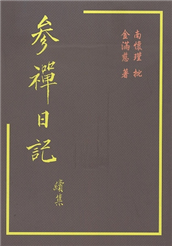 參禪日記
續集
南懷瑾 批
金滿慈 著